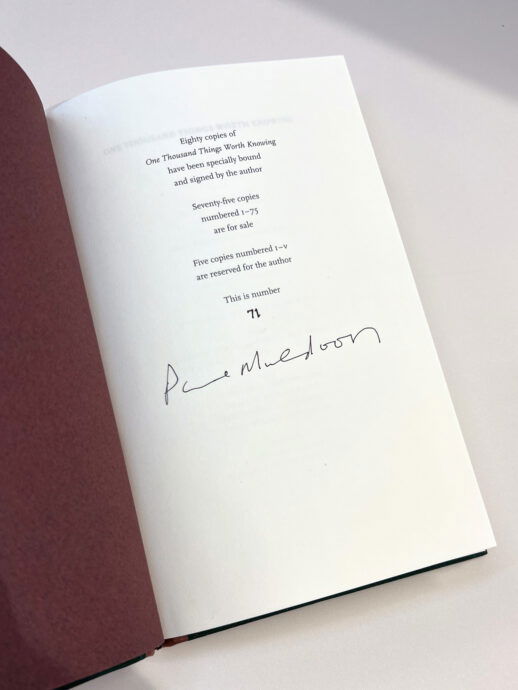 Eighty copies of
One Thousand Things Worth Knowing
have been specially bound
and signed by the author
Seventy-five copies
numbered 1–75
are for sale
Five copies numbered I–V
are reserved for the author
This is number
71
Paul Muldoon